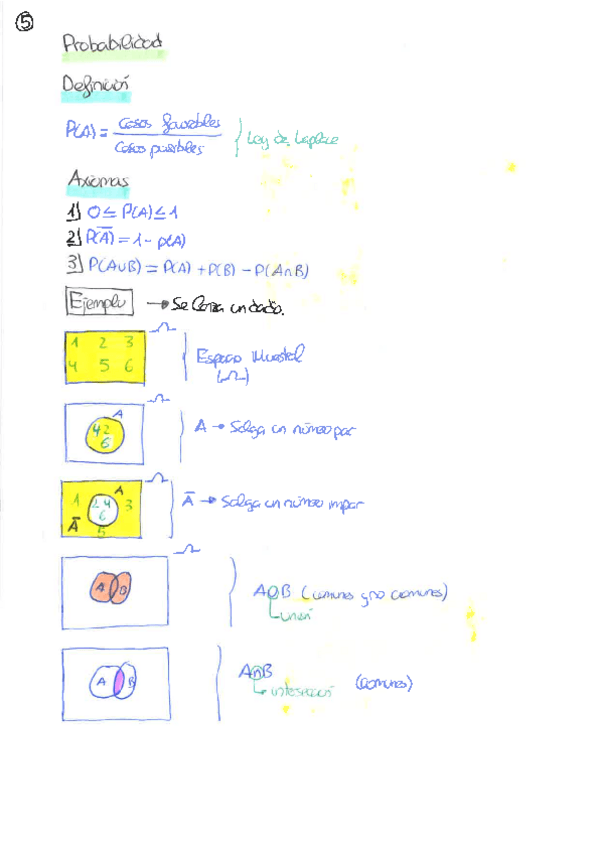 5
Probabilidad
Definición
P(A) = Casos favorables / Casos posibles } Ley de Laplace
Axiomas
1) 0 ≤ P(A) ≤ 1
2) P(A̅) = 1 - p(A)
3) P(A∪B) = P(A) + P(B) - P(A∩B)
Ejemplo → Se lanza un dado.
Ω
1 2 3
4 5 6
Espacio Muestral
(Ω)
Ω
A
4 2
6
A → Salga un número par
Ω
A
1 2 4 3
6
A̅
5
A̅ → Salga un número impar
Ω
A B
A∪B (comunes y no comunes)
unión
A B
A∩B (comunes)
intersección